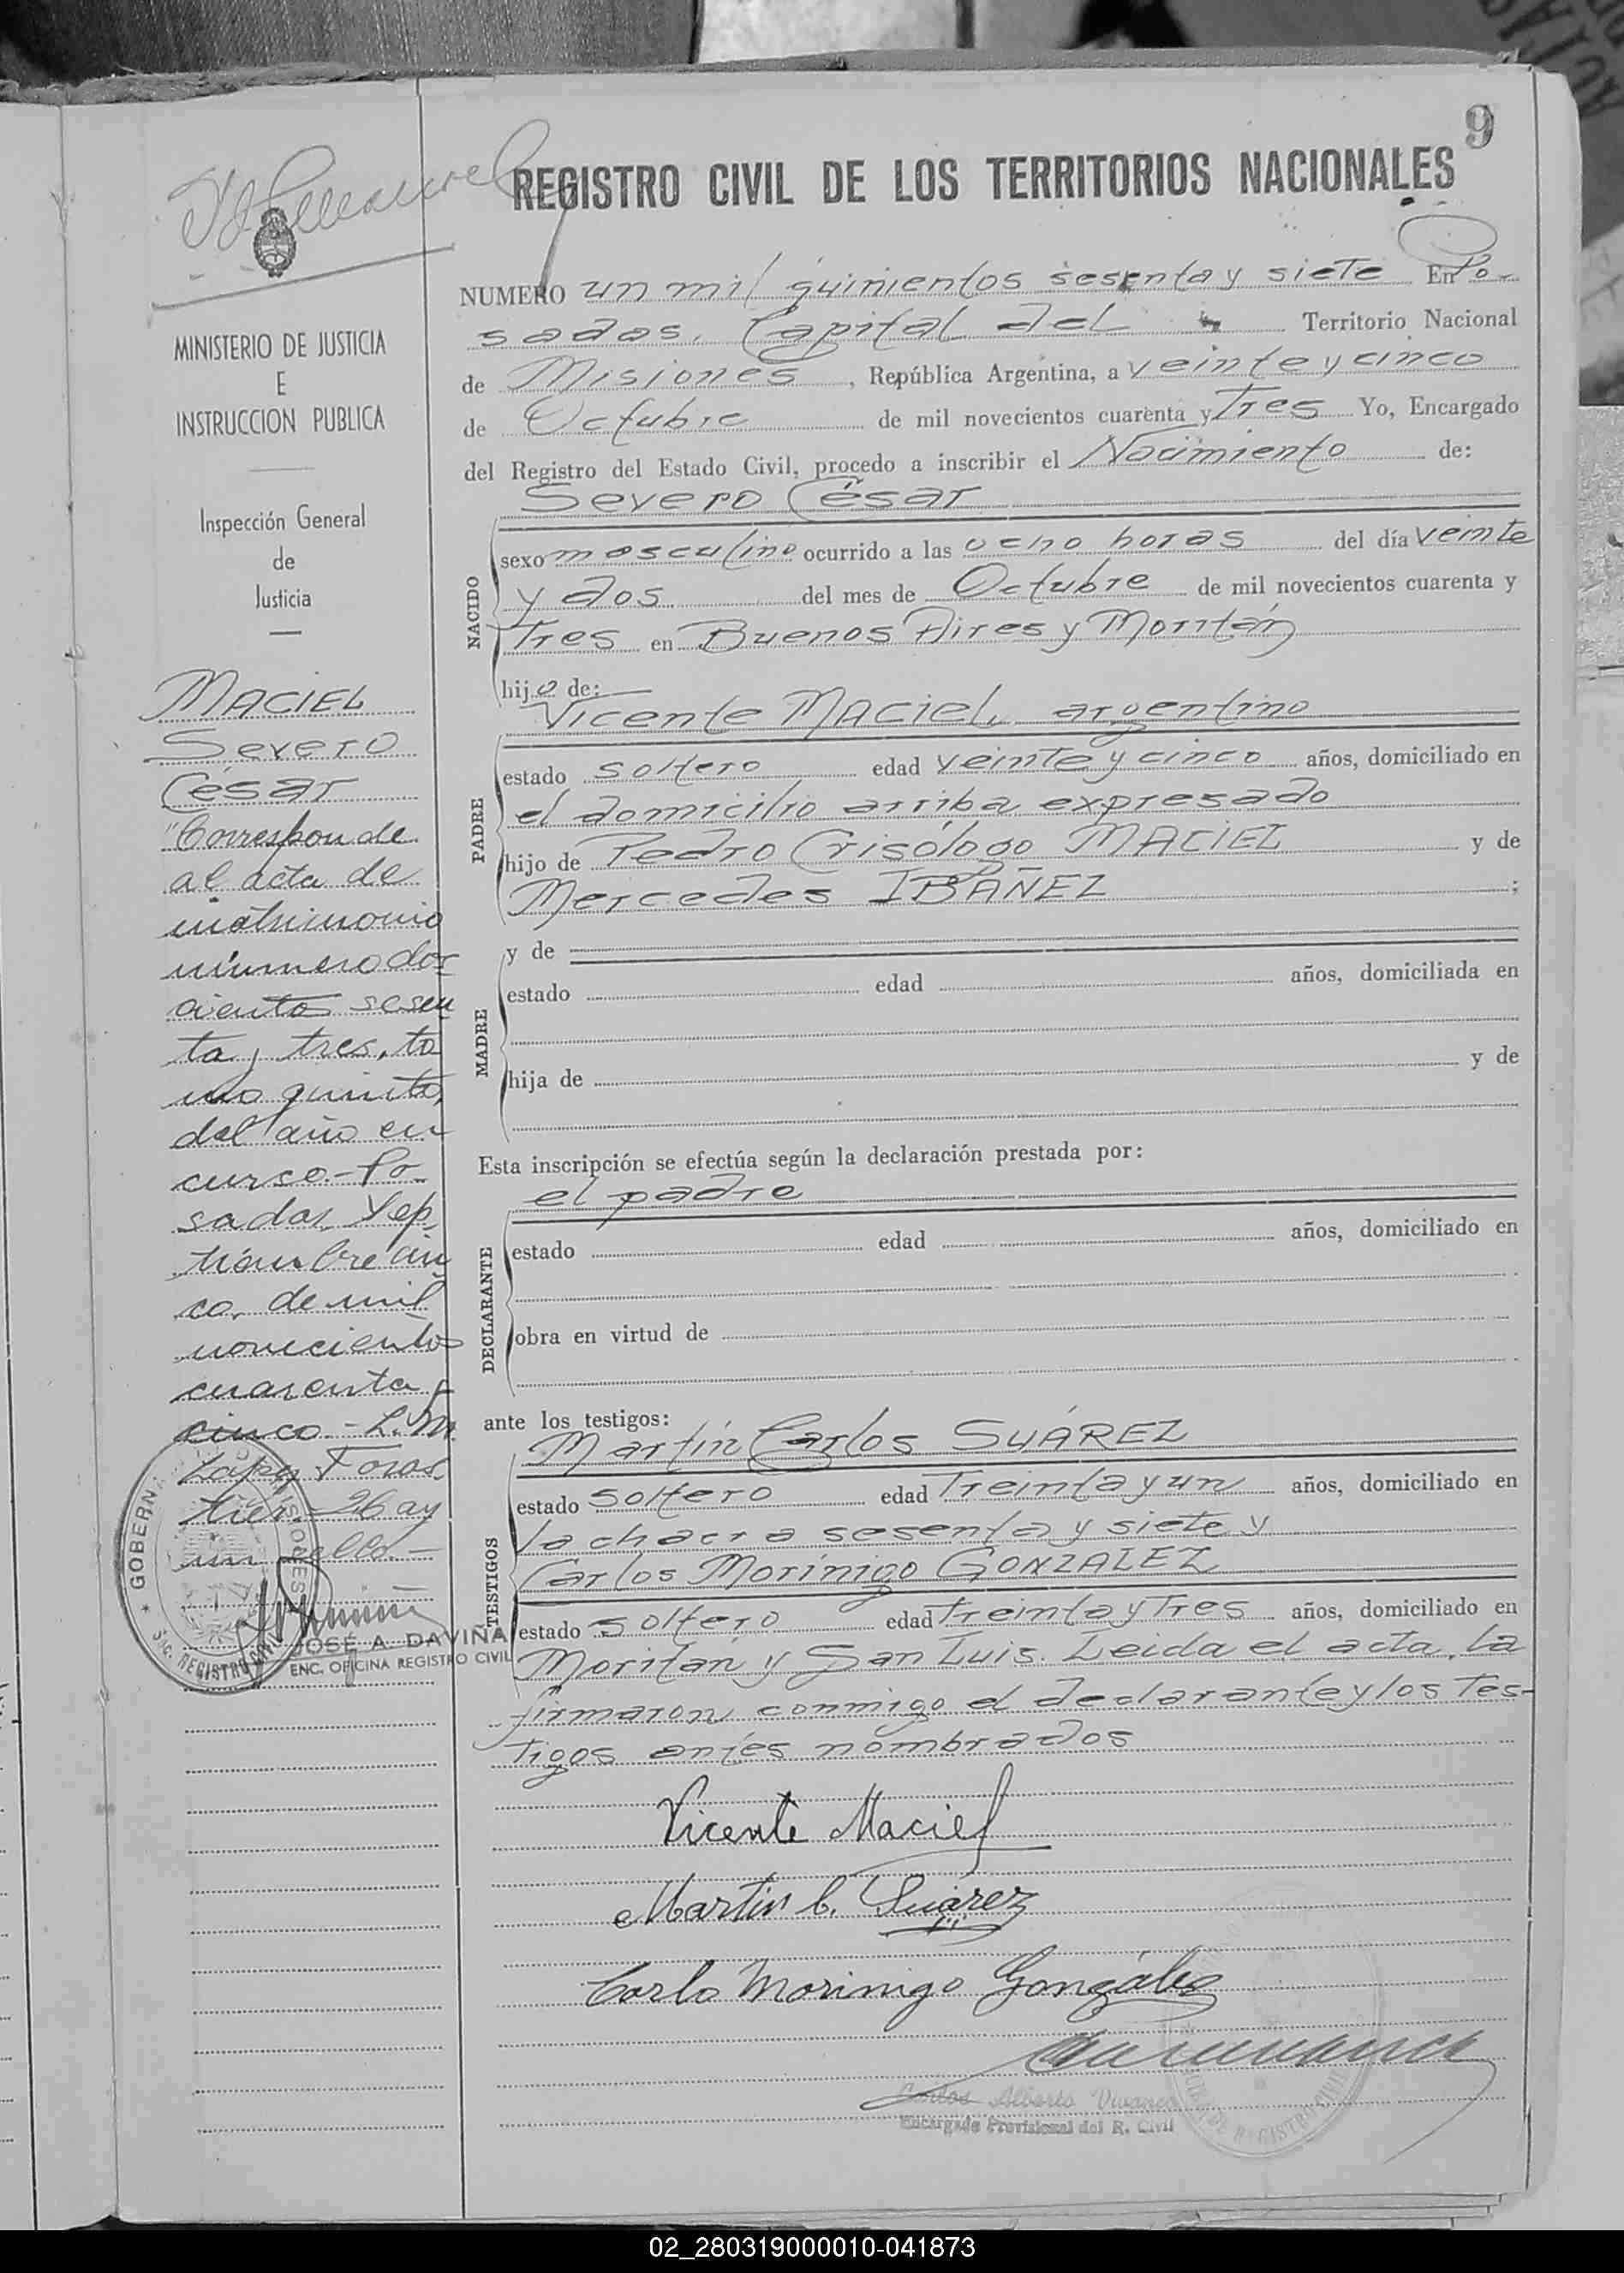 9
REGISTRO CIVIL DE LOS TERRITORIOS NACIONALES
MINISTERIO DE JUSTICIA
E
INSTRUCCION PUBLICA
Inspección General
de
Justicia
MACIEL
Severo
César
"Corresponde
al acta de
matrimonio
número dos
cientos sesen
ta y tres, to
mo quinto,
del año en
curso.- Po
sadas, Sep
tiembre cin
co, de mil
novecientos
cuarenta y
cinco.- L.M.
un sello.-
GOBERN
REGISTRO CIVIL
JOSÉ A. DAVIÑA
ENC. OFICINA REGISTRO CIVIL
NUMERO un mil quinientos sesenta y siete En Po-
sadas, Capital del Territorio Nacional
de Misiones, República Argentina, a veinte y cinco
de Octubre de mil novecientos cuarenta y Tres Yo, Encargado
del Registro del Estado Civil, procedo a inscribir el Nacimiento de:
Severo César
NACIDO
sexo masculino ocurrido a las ocho horas del día veinte
y dos del mes de Octubre de mil novecientos cuarenta y
Tres en Buenos Aires y Moritán
hijo de:
Vicente Maciel, argentino
PADRE
estado soltero edad veinte y cinco años, domiciliado en
el domicilio arriba expresado
hijo de Pedro Crisólogo MACIEL y de
Mercedes IBAÑEZ;
y de
MADRE
estado edad años, domiciliada en
hija de y de
Esta inscripción se efectúa según la declaración prestada por:
el padre
DECLARANTE
estado edad años, domiciliado en
obra en virtud de
ante los testigos:
Martín Carlos SUÁREZ
TESTIGOS
estado soltero edad Treinta y un años, domiciliado en
la chacra sesenta y siete y
Carlos Morínigo GONZALEZ
estado soltero edad treinta y Tres años, domiciliado en
Moritán y San Luis. Leida el acta, la
firmaron conmigo el declarante y los Tes-
tigos antes nombrados
Vicente Maciel
Martin C. Suárez
Carlo Morinigo González
Carlos Alberto Vivanco
Encargado Provisional del R. Civil
02_280319000010-041873